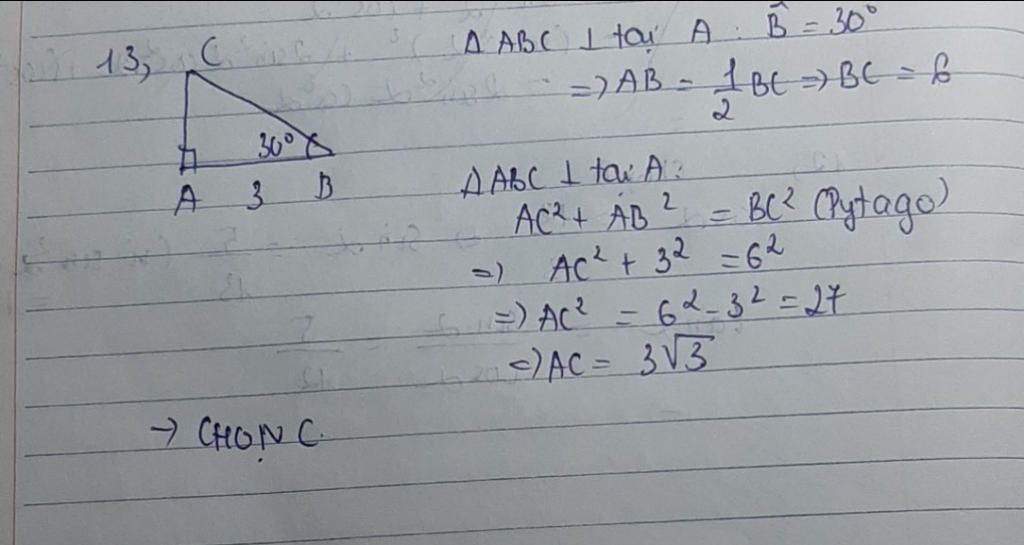 13,
C
30°
A 3 B
Δ ABC ⊥ tại A : B̂ = 30°
=> AB = 1/2 BC => BC = 6
Δ ABC ⊥ tại A :
AC² + AB² = BC² (Pytago)
=> AC² + 3² = 6²
=> AC² = 6² - 3² = 27
=> AC = 3√3
→ CHỌN C.